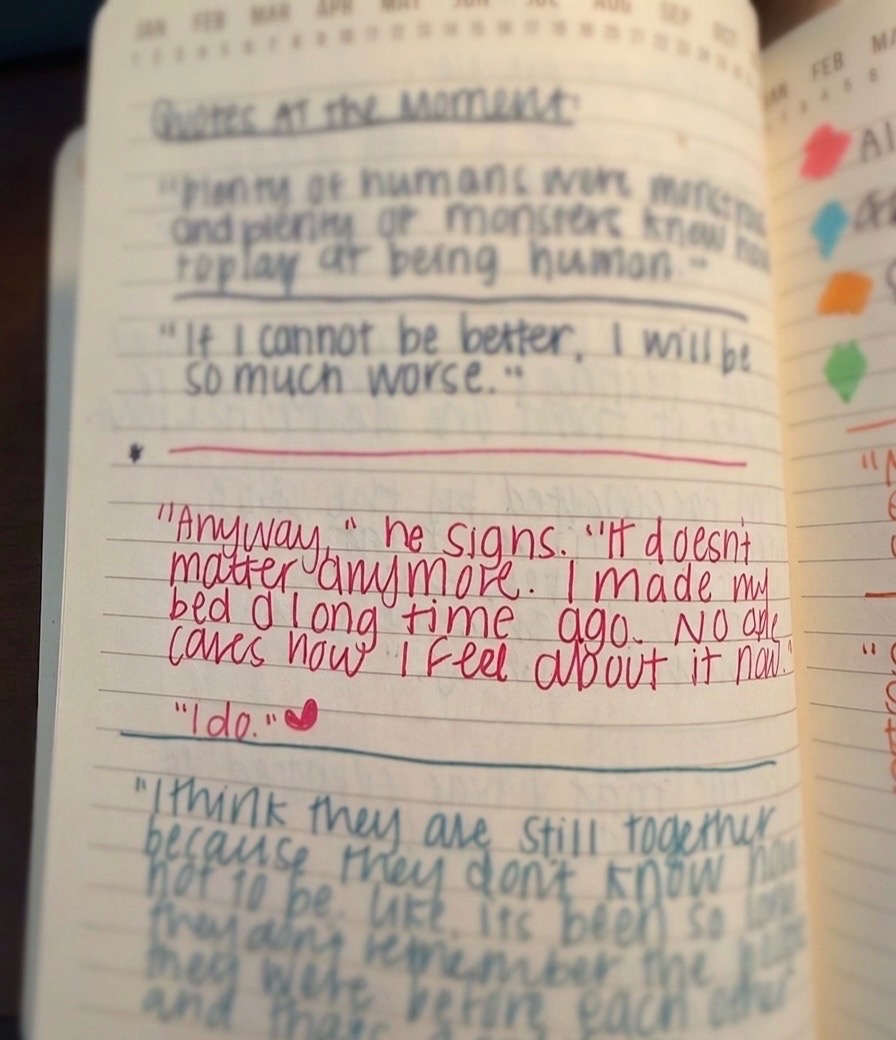 JAN FEB MAR APR MAY JUN JUL AUG SEP OCT
Quotes At the Moment
"plenty of humans were monstrous
and plenty of monsters know how
to play at being human."
"If I cannot be better, I will be
so much worse."
"Anyway," he signs. "It doesn't
matter anymore. I made my
bed a long time ago. No one
cares how I feel about it now."
"I do."
"I think they are still together
because they don't know how
not to be. Like its been so long
they don't remember the
they were before each other
and
JAN FEB MA